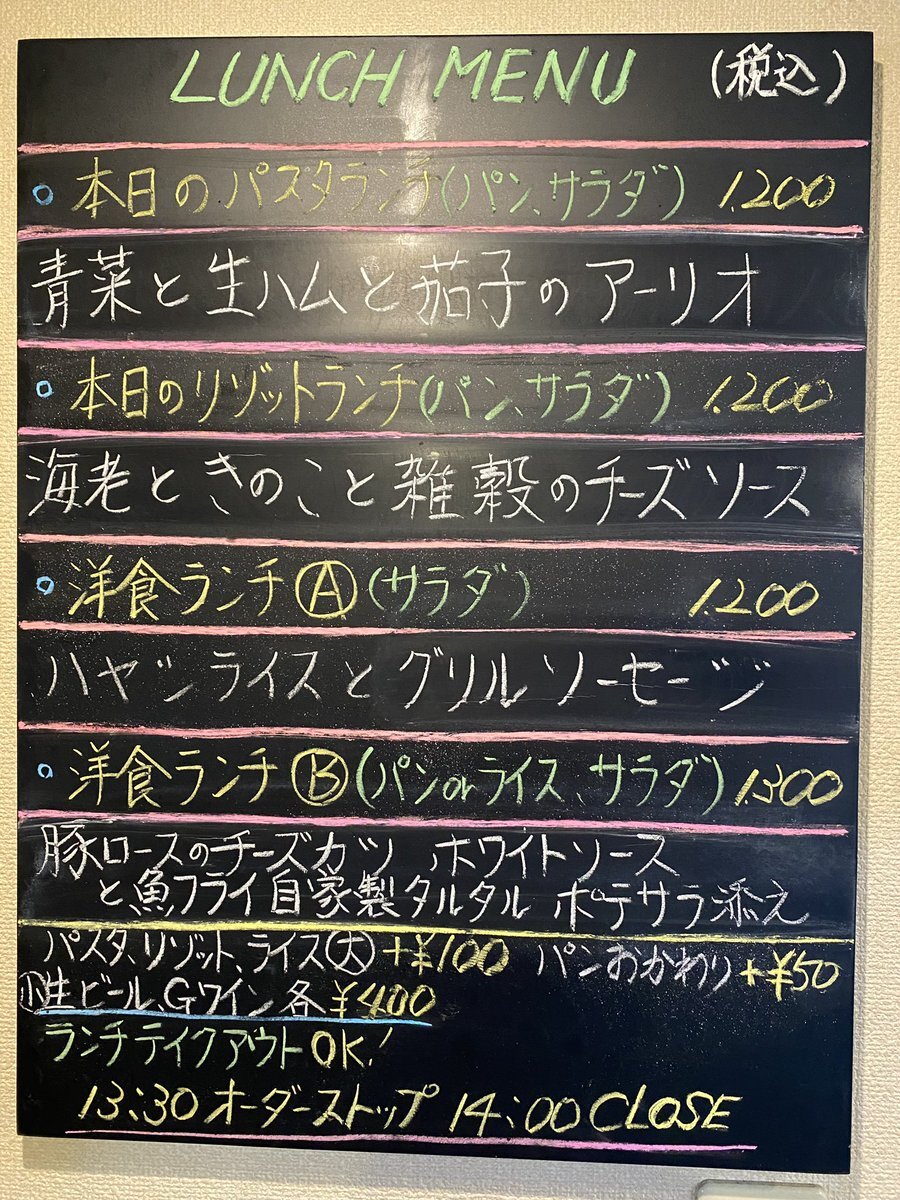 LUNCH MENU (税込)
○ 本日のパスタランチ(パン、サラダ) 1.200
青菜と生ハムと茄子のアーリオ
○ 本日のリゾットランチ(パン、サラダ) 1.200
海老ときのこと雑穀のチーズソース
○ 洋食ランチⒶ(サラダ) 1.200
ハヤシライスとグリルソーセージ
○ 洋食ランチⒷ(パンorライス、サラダ) 1.300
豚ロースのチーズカツ ホワイトソース
と魚フライ自家製タルタル ポテサラ添え
パスタ、リゾット、ライス(大)+¥100 パンおかわり+¥50
小生ビール、Gワイン各¥400
ランチテイクアウトOK!
13:30オーダーストップ 14:00CLOSE